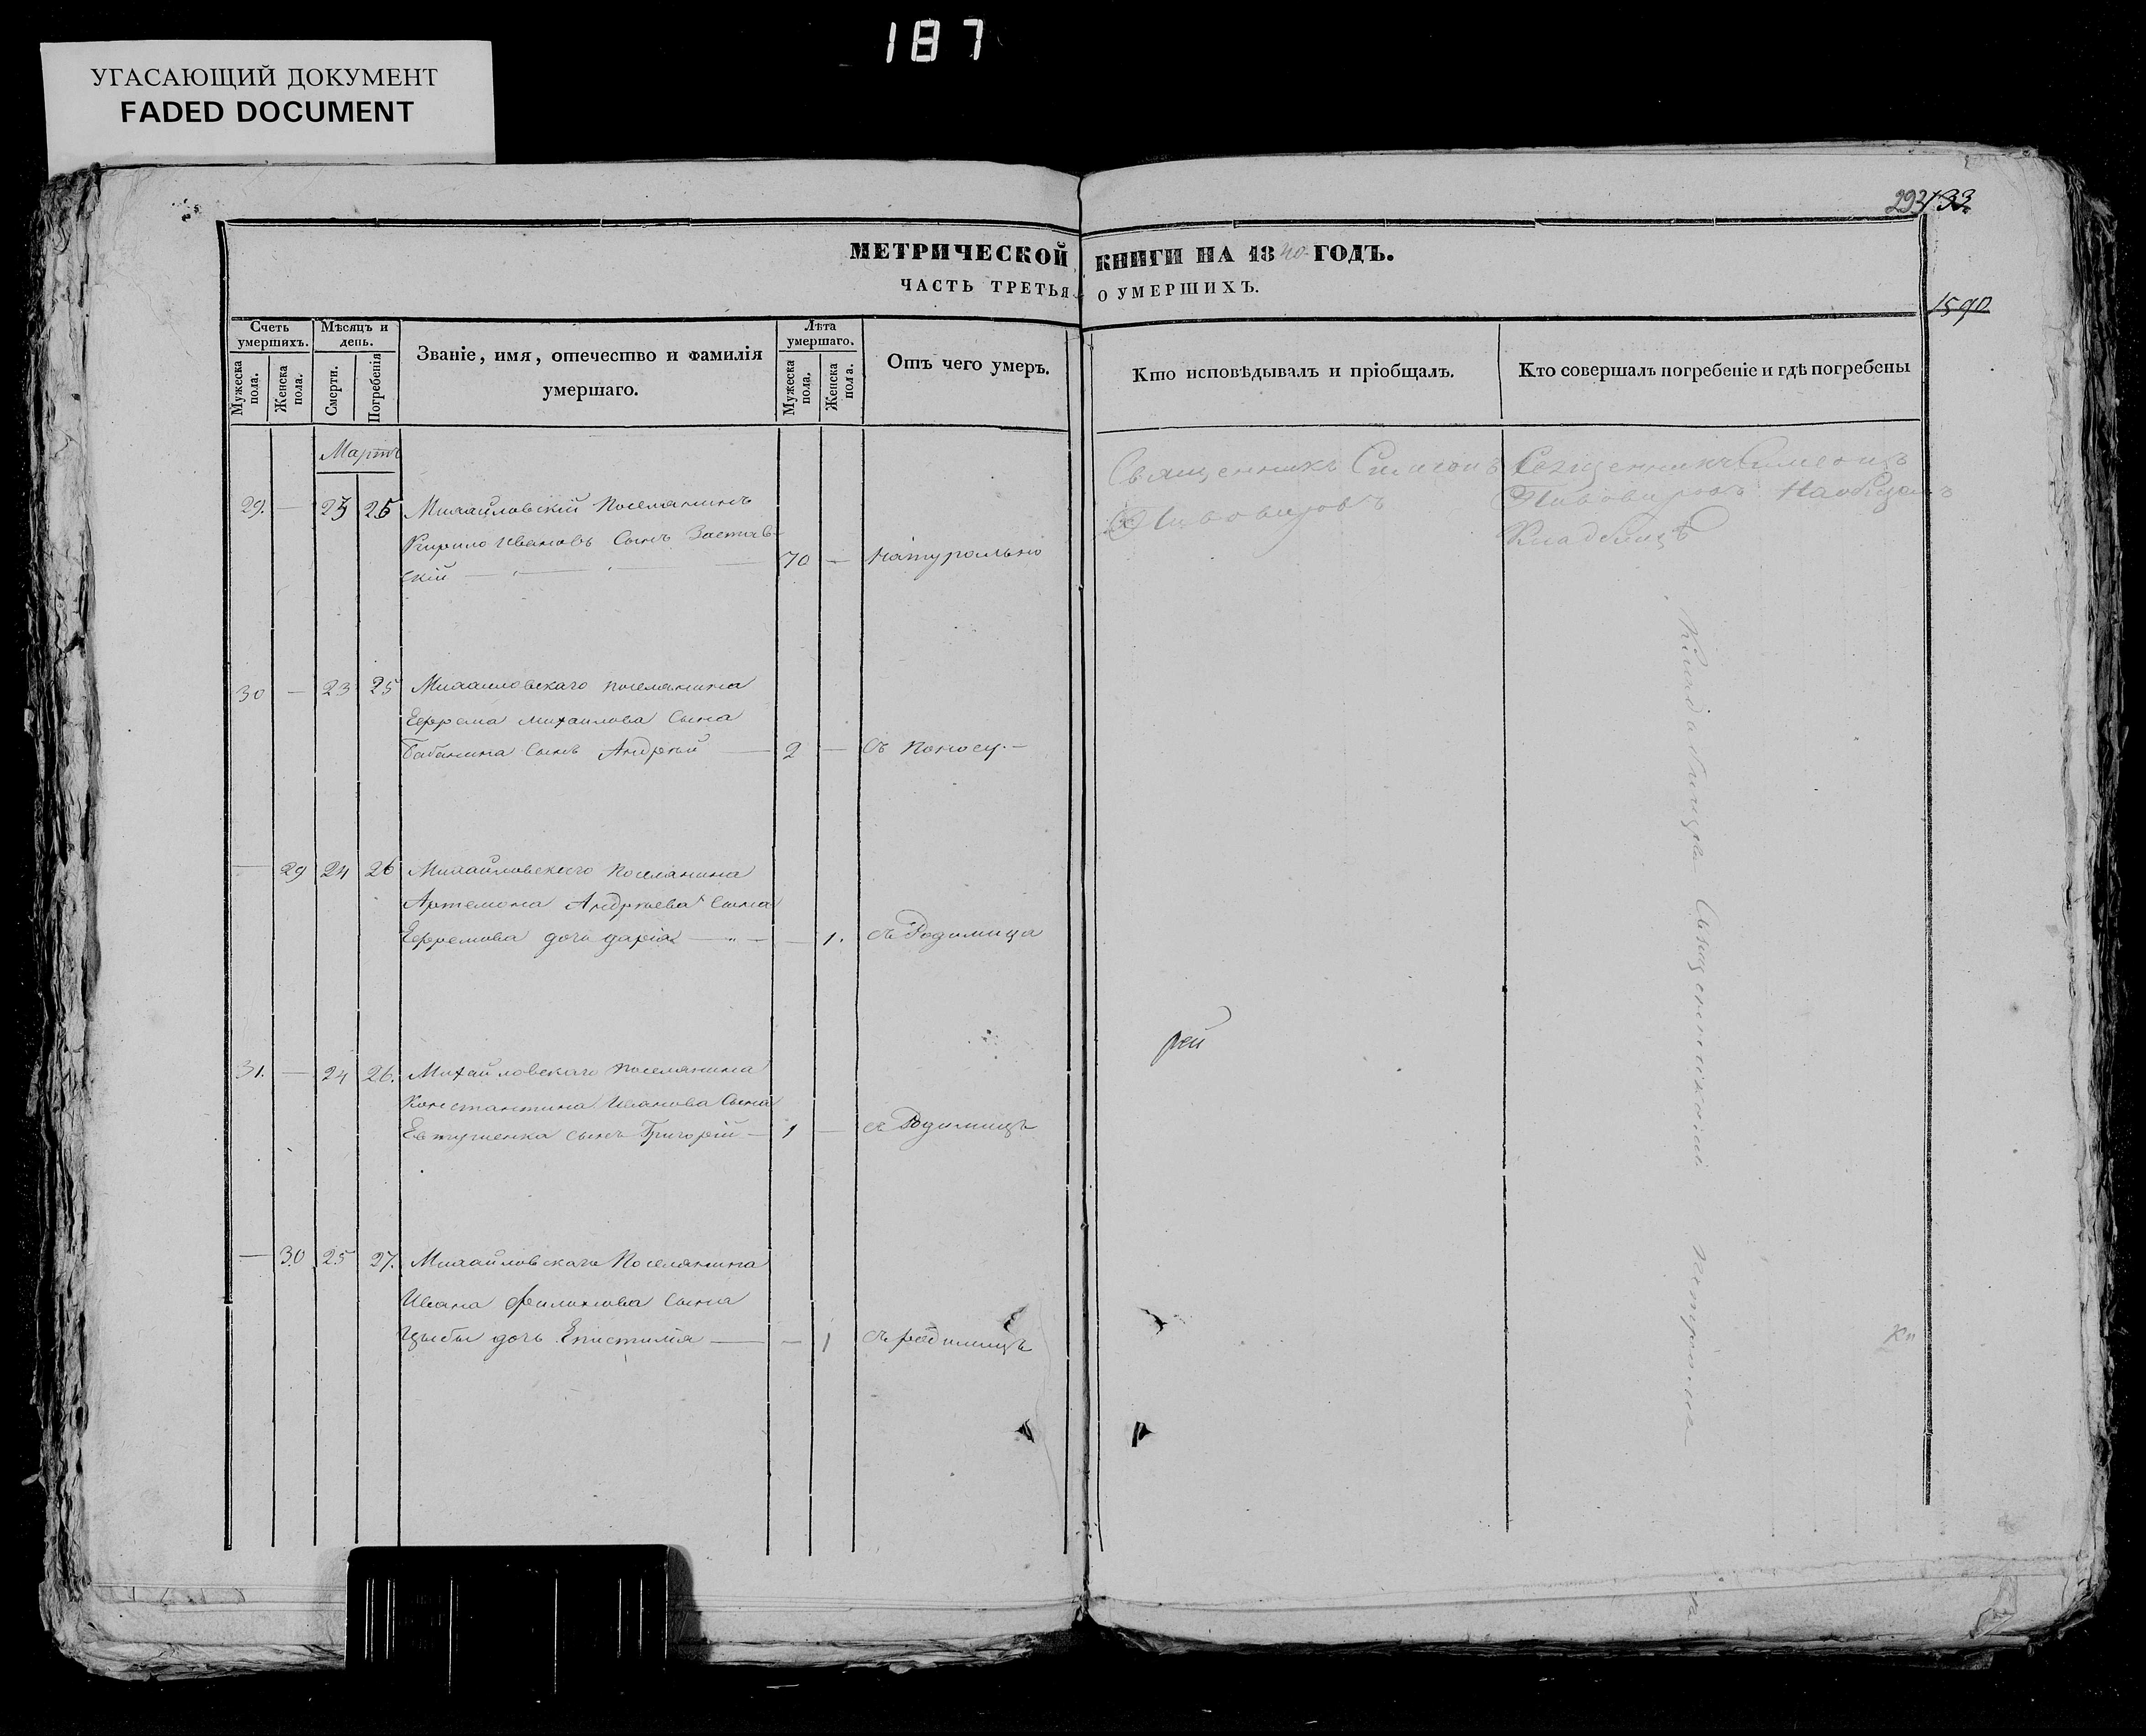 187
УГАСАЮЩИЙ ДОКУМЕНТ
FADED DOCUMENT
293 133.
МЕТРИЧЕСКОЙ КНИГИ НА 1840 ГОДЪ.
ЧАСТЬ ТРЕТЬЯ О УМЕРШИХЪ.
1590
Счетъ умершихъ.
Мужеска пола.
Женска пола.
Мѣсяцъ и день.
Смерти.
Погребенія
Званіе, имя, отечество и фамилія
умершаго.
Лѣта умершаго.
Мужеска пола.
Женска пола.
Отъ чего умеръ.
Кто исповѣдывалъ и пріобщалъ.
Кто совершалъ погребеніе и гдѣ погребены
Мартъ
29. — 23 25 Михайловскій поселянинъ
Кирило Ивановъ Сынъ
скій — 70 — Натурально
Священникъ Симеонъ
Пивоваровъ
Священникъ Симеонъ
Пивоваровъ На общемъ
Кладбищѣ
30 — 23 25 Михайловскаго поселянина
Ефрема Михаилова Сына
Бабанина Сынъ Андрей — 2 — Съ поносу. —
— 29 24 26 Михайловскаго поселянина
Артемона Андреева Сына
Ефремова дочь дарія — — 1. съ Родимица
31. — 24 26. Михайловскаго поселянина
Константина Иванова Сына
Евтушенка сынъ Григорій — 1 — съ Родимицъ
— 30 25 27. Михайловскаго Поселянина
Ивана Филипова Сына
Цыбы дочь Епистимія — — 1 съ родимицъ
рей